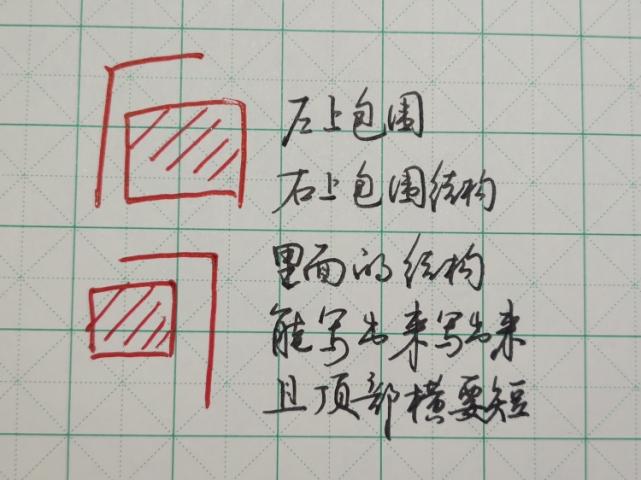 左上包围
右上包围结构
里面的结构
能写出来写出来
且顶部横要短